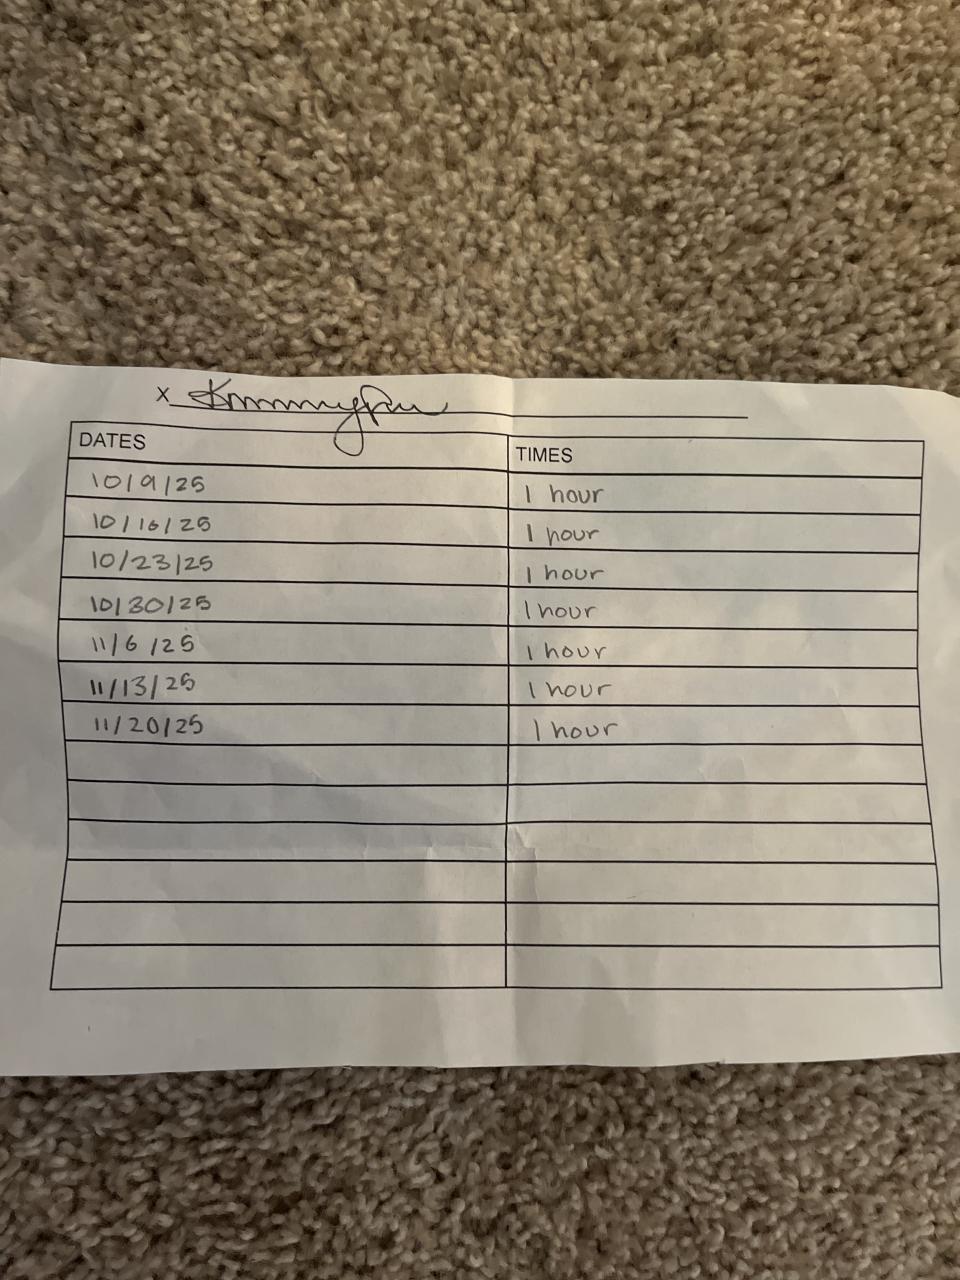 x
DATES TIMES
10/9/25 1 hour
10/16/25 1 hour
10/23/25 1 hour
10/30/25 1 hour
11/6/25 1 hour
11/13/25 1 hour
11/20/25 1 hour